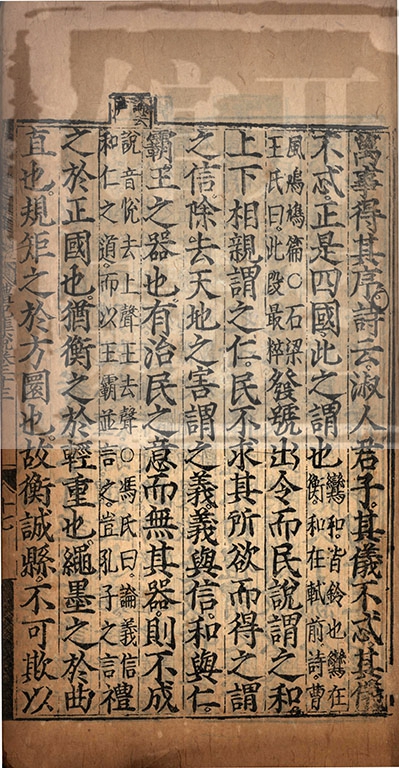 萬事得其序詩云淑人君子其儀不忒其儀
不忒。正是四國此之謂也鸞和皆鈴也鸞在
衡和在軾前詩曹
風鳲鳩篇○石梁
王氏曰此段最粹發號出令而民說謂之和
上下相親謂之仁。民不求其所欲而得之謂
之信。除去天地之害謂之義。義與信。和與仁。
霸王之器也。有治民之意而無其器則不成
說音悅去上聲王去聲○馮氏曰論義信
和仁之道。而以王霸並言之。豈孔子之言禮
之於正國也。猶衡之於輕重也。繩墨之於曲
直也。規矩之於方圜也。故衡誠縣。不可欺以